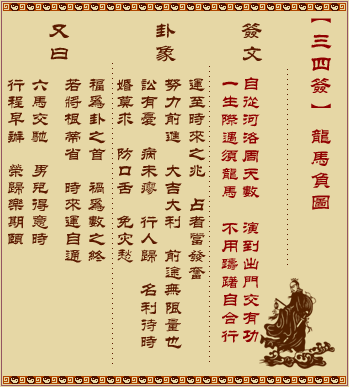 【三四簽】 龍馬負圖
簽文
自從河洛周天數 演到出門交有功
一生際遇須龍馬 不用躊躇自合行
卦象
運至時來之兆 占者當發奮
努力前進 大吉大利 前途無限量也
訟有憂 病未瘳 行人歸 名利待時
婚莫求 防口舌 免災愁
又曰
福爲卦之首 禍爲數之終
若將根蒂省 時來運自通
六馬交馳 男兒得意時
行程早辦 榮歸樂期頤